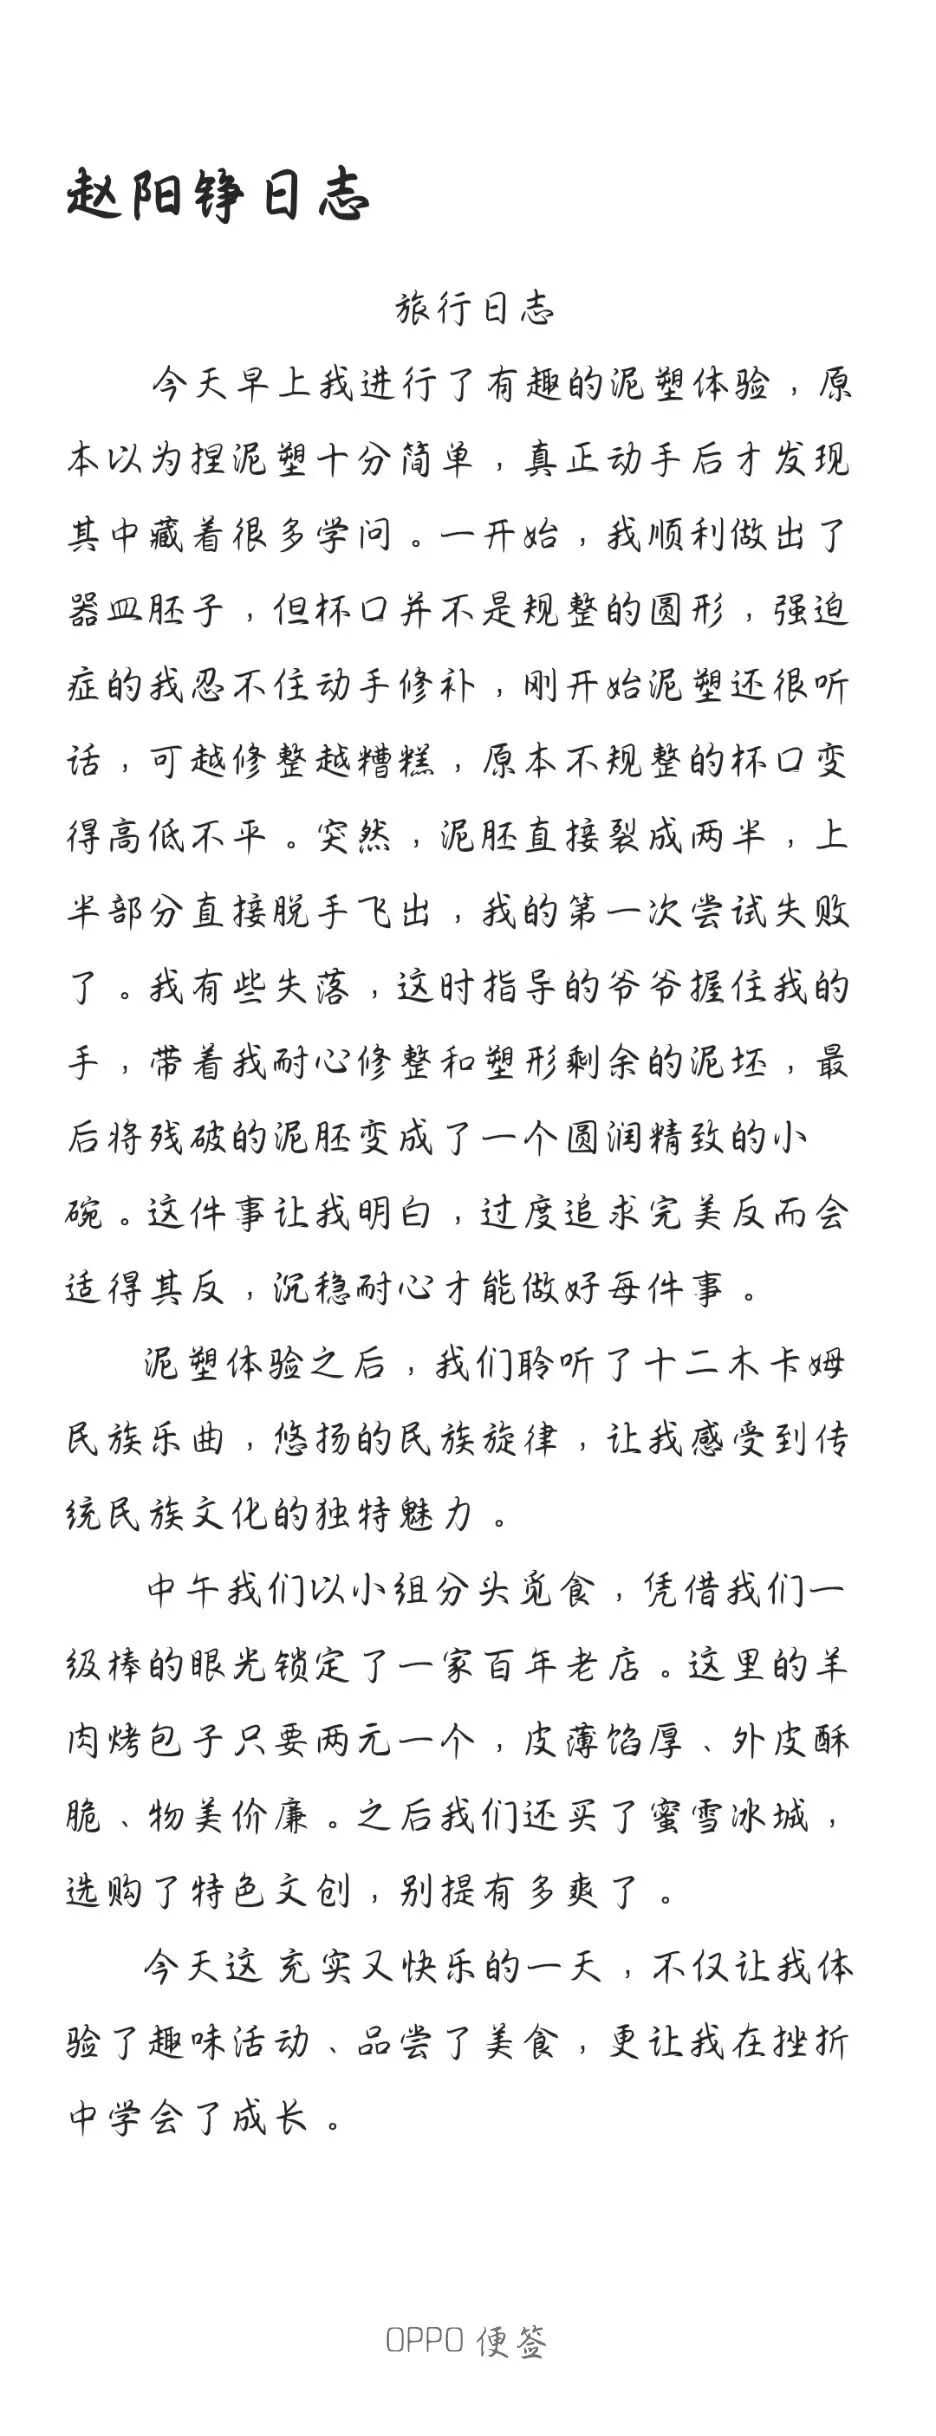 赵阳铮日志
旅行日志
今天早上我进行了有趣的泥塑体验，原
本以为捏泥塑十分简单，真正动手后才发现
其中藏着很多学问。一开始，我顺利做出了
器皿胚子，但杯口并不是规整的圆形，强迫
症的我忍不住动手修补，刚开始泥塑还很听
话，可越修整越糟糕，原本不规整的杯口变
得高低不平。突然，泥胚直接裂成两半，上
半部分直接脱手飞出，我的第一次尝试失败
了。我有些失落，这时指导的爷爷握住我的
手，带着我耐心修整和塑形剩余的泥坯，最
后将残破的泥胚变成了一个圆润精致的小
碗。这件事让我明白，过度追求完美反而会
适得其反，沉稳耐心才能做好每件事。
泥塑体验之后，我们聆听了十二木卡姆
民族乐曲，悠扬的民族旋律，让我感受到传
统民族文化的独特魅力。
中午我们以小组分头觅食，凭借我们一
级棒的眼光锁定了一家百年老店。这里的羊
肉烤包子只要两元一个，皮薄馅厚、外皮酥
脆、物美价廉。之后我们还买了蜜雪冰城，
选购了特色文创，别提有多爽了。
今天这 充实又快乐的一天，不仅让我体
验了趣味活动、品尝了美食，更让我在挫折
中学会了成长。
OPPO 便签